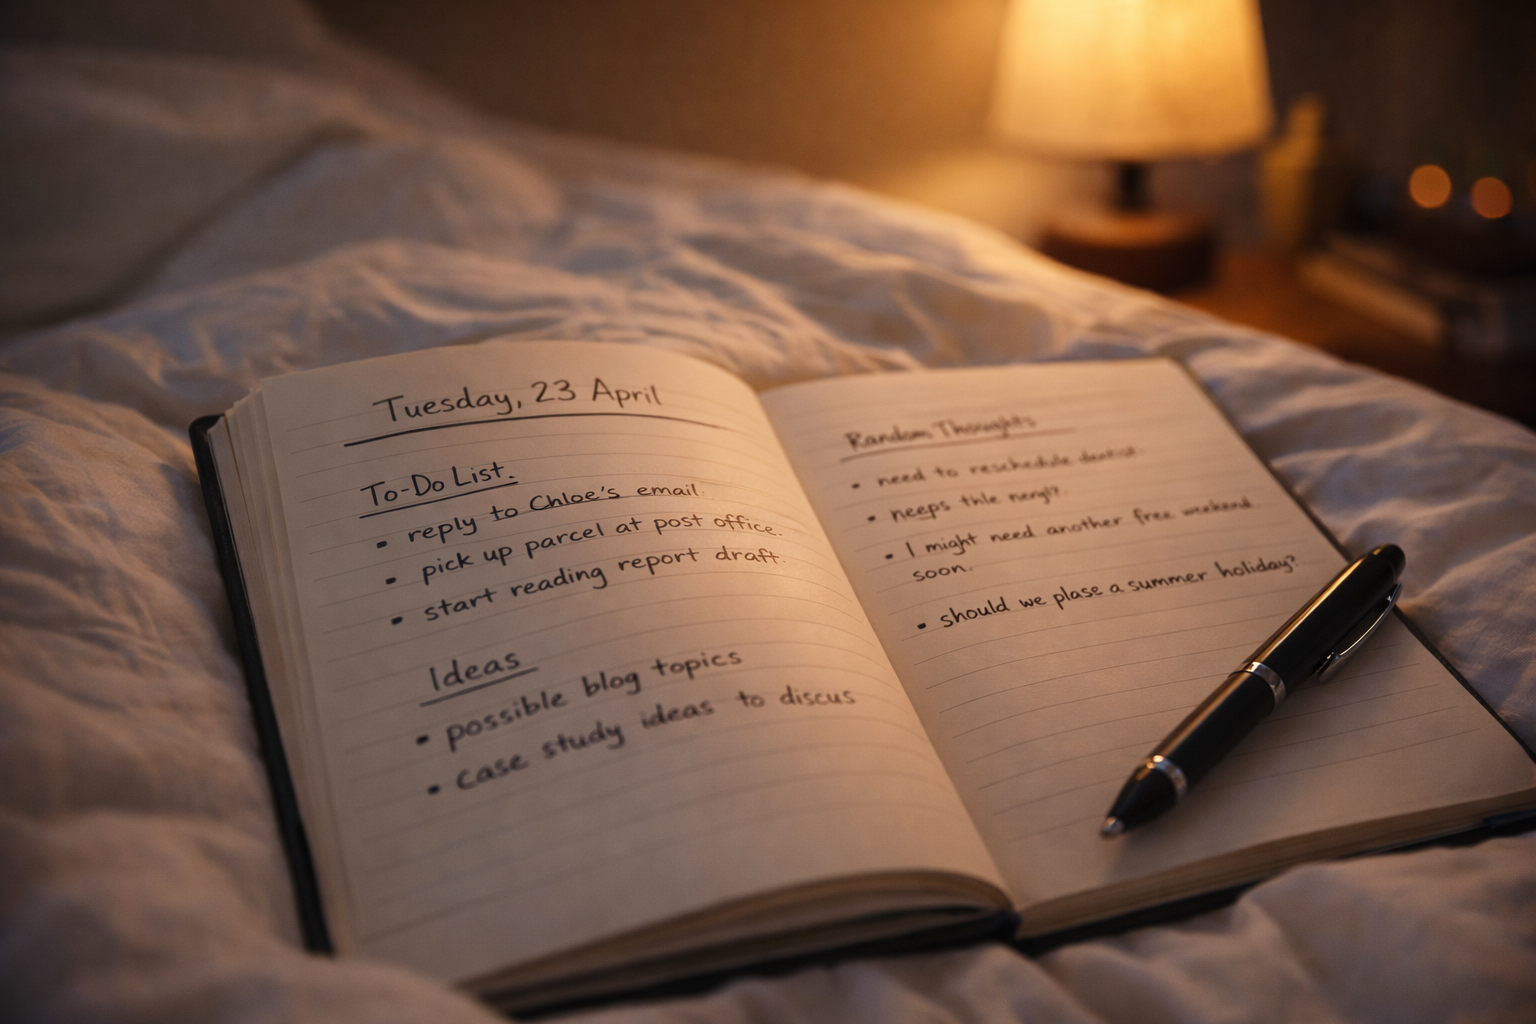 Tuesday, 23 April
To-Do List.
• reply to Chloe's email.
• pick up parcel at post office.
• start reading report draft.
Ideas
• possible blog topics
• case study ideas to discus
Random Thoughts
• need to reschedule dentist.
• neeps
• I might need another free weekend
soon.
• should we plase a summer holiday?